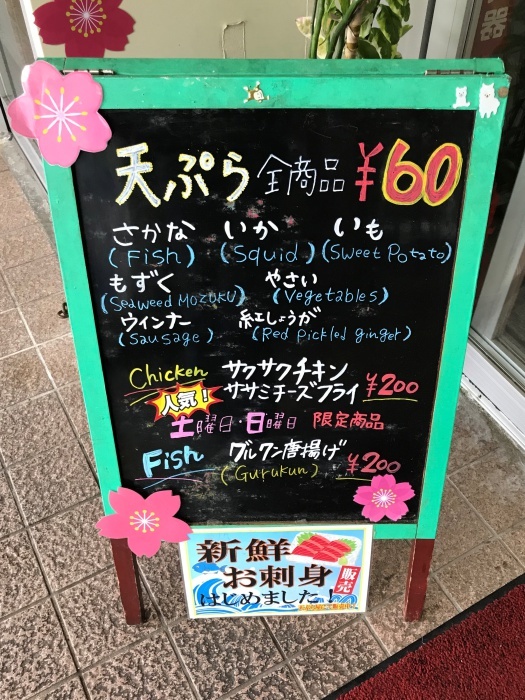 天ぷら 全商品 ¥60
さかな いか いも
(Fish) (Squid) (Sweet Potato)
もずく やさい
(Seaweed MOZUKU) (Vegetables)
ウインナー 紅しょうが
(Sausage) (Red Pickled ginger)
Chicken サクサクチキン
人気! ササミチーズフライ ¥200
土曜日・日曜日 限定商品
Fish グルクン唐揚げ
(Gurukun) ¥200
新鮮
お刺身
はじめました!
販売
器